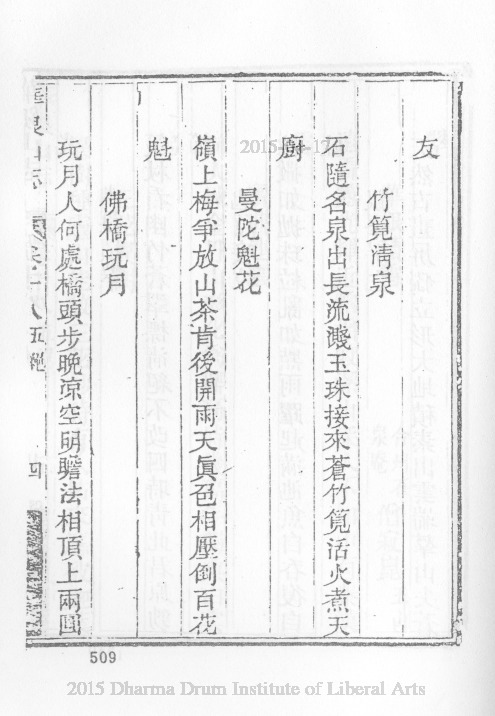 友
竹筧清泉
石隨名泉出長流濺玉珠接來蒼竹筧活火煮天
廚
曼陀魁花
嶺上梅爭放山茶肯後開雨天眞色相壓倒百花
魁
佛橋玩月
玩月人何處橋頭步晚涼空明瞻法相頂上兩圓
山志 五絕 四
509
2015 Dharma Drum Institute of Liberal Arts